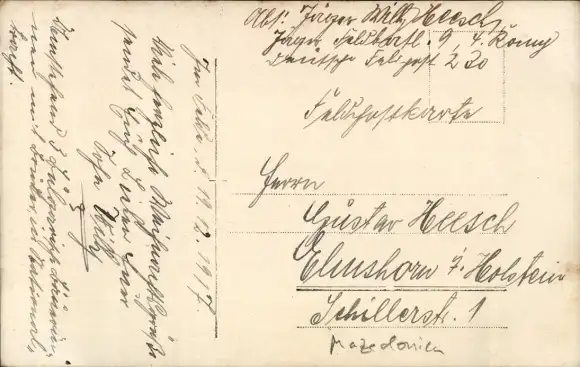 Abs: Jäger Wilh. Heesch
Jäger Feldbatl. 9, 4. Komp
Deutsche Feldpost 220
Feldpostkarte
Herrn
Gustav Heesch
Elmshorn i/ Holstein
Schillerst. 1
Mazedonien
Im Felde d. 19.12.1917.
Viele herzliche Weihnachtsgrüße
sendet Euch Lieben
Sohn Willy
Deutschland
und mit in National
tracht.